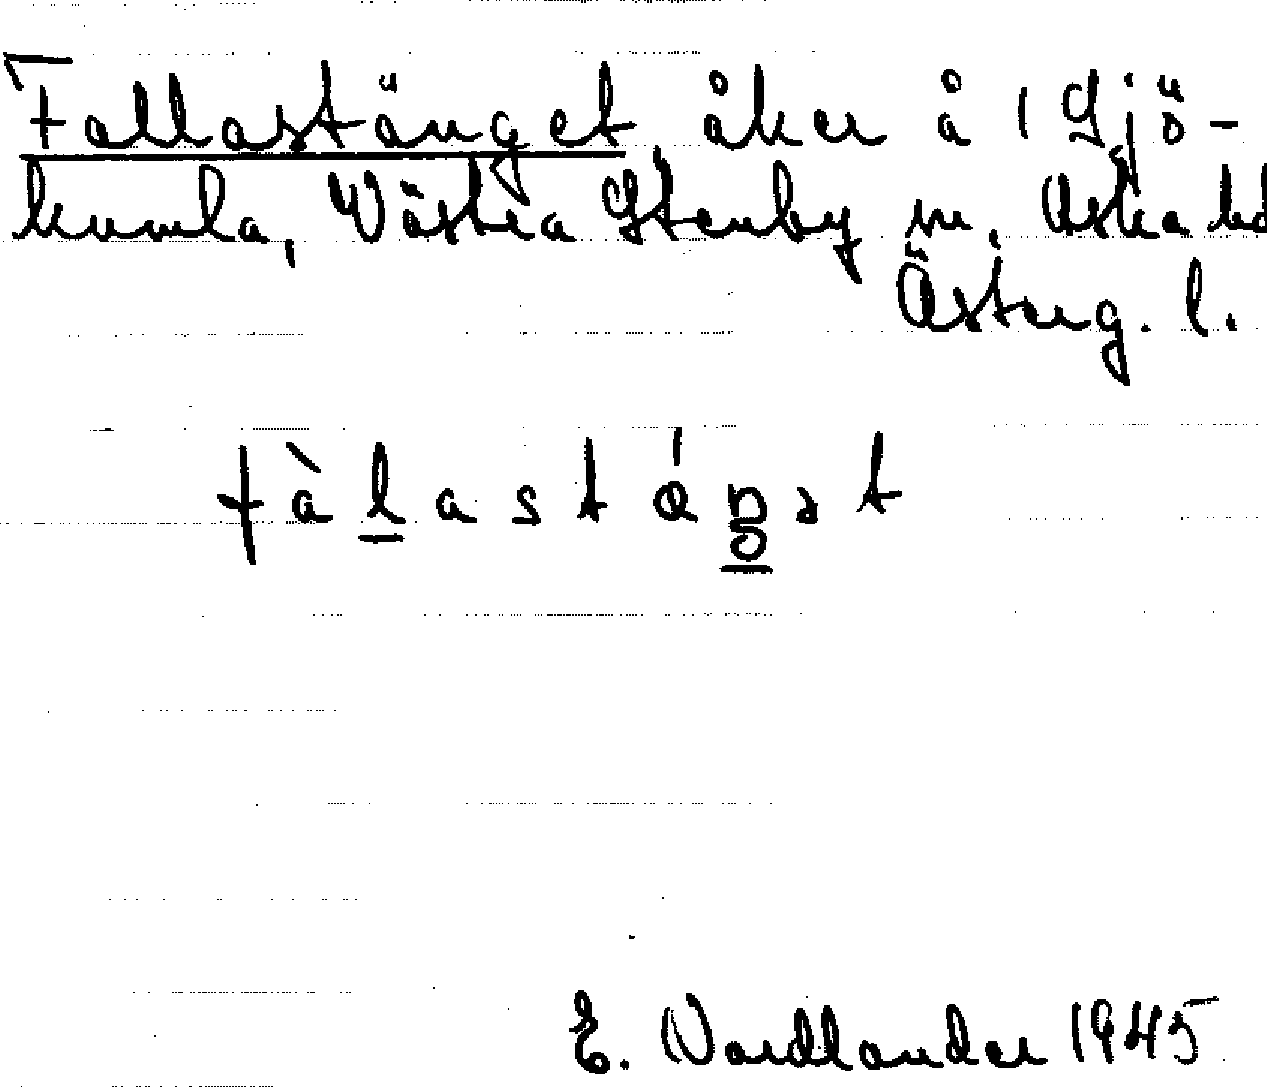 Fallastänget åker å 1 Sjö-
kumla, Västra Stenby sn. Aska hd
Österg. l.
fàlastáŋ̥ət
E. Nordlander 1945